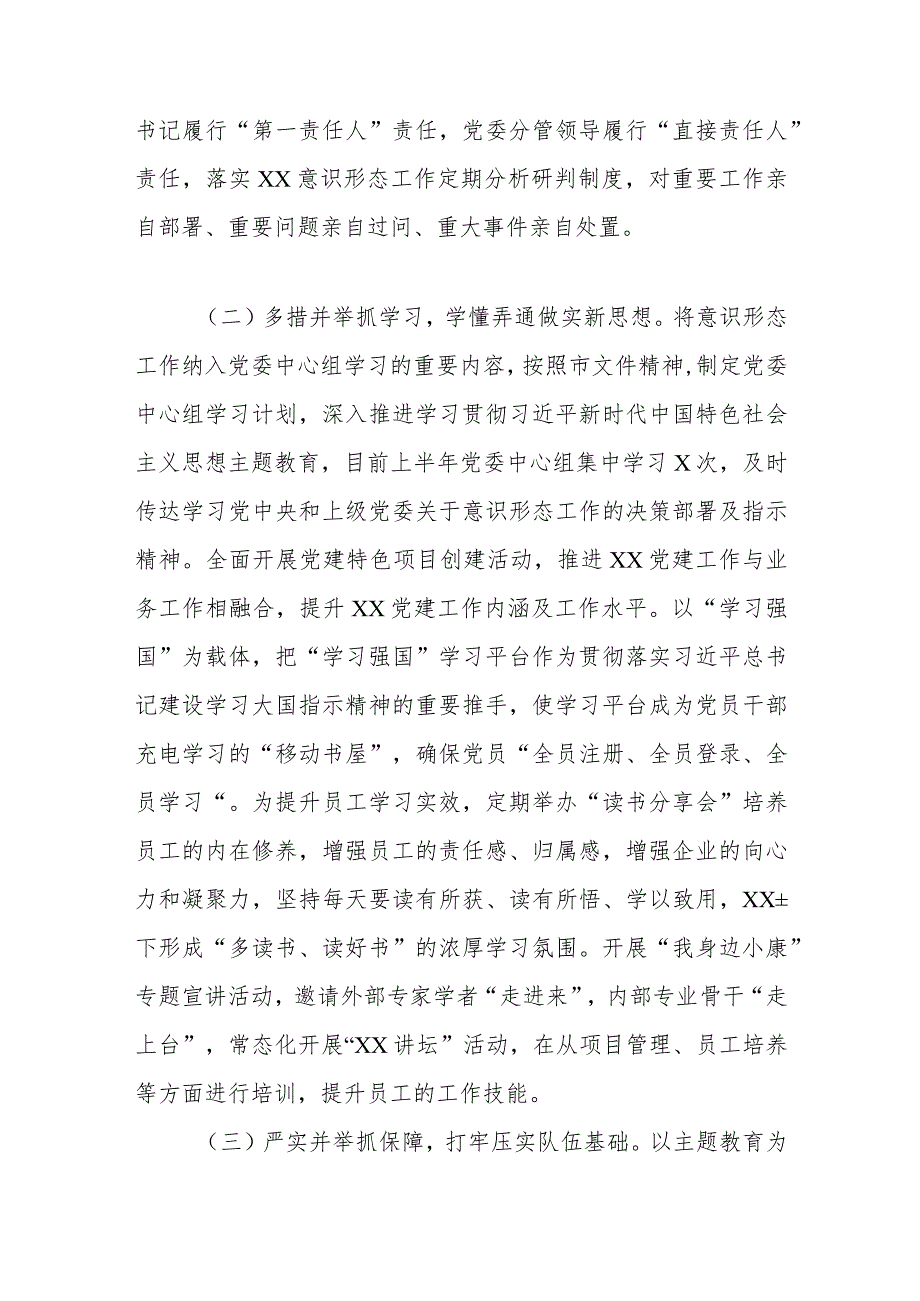 书记履行“第一责任人”责任，党委分管领导履行“直接责任人”
责任，落实 XX 意识形态工作定期分析研判制度，对重要工作亲
自部署、重要问题亲自过问、重大事件亲自处置。
（二）多措并举抓学习，学懂弄通做实新思想。将意识形态
工作纳入党委中心组学习的重要内容，按照市文件精神,制定党委
中心组学习计划，深入推进学习贯彻习近平新时代中国特色社会
主义思想主题教育，目前上半年党委中心组集中学习 X 次，及时
传达学习党中央和上级党委关于意识形态工作的决策部署及指示
精神。全面开展党建特色项目创建活动，推进 XX 党建工作与业
务工作相融合，提升 XX 党建工作内涵及工作水平。以“学习强
国”为载体，把“学习强国”学习平台作为贯彻落实习近平总书
记建设学习大国指示精神的重要推手，使学习平台成为党员干部
充电学习的“移动书屋”，确保党员“全员注册、全员登录、全
员学习“。为提升员工学习实效，定期举办“读书分享会”培养
员工的内在修养，增强员工的责任感、归属感，增强企业的向心
力和凝聚力，坚持每天要读有所获、读有所悟、学以致用，XX±
下形成“多读书、读好书”的浓厚学习氛围。开展“我身边小康”
专题宣讲活动，邀请外部专家学者“走进来”，内部专业骨干“走
上台”，常态化开展“XX 讲坛”活动，在从项目管理、员工培养
等方面进行培训，提升员工的工作技能。
（三）严实并举抓保障，打牢压实队伍基础。以主题教育为